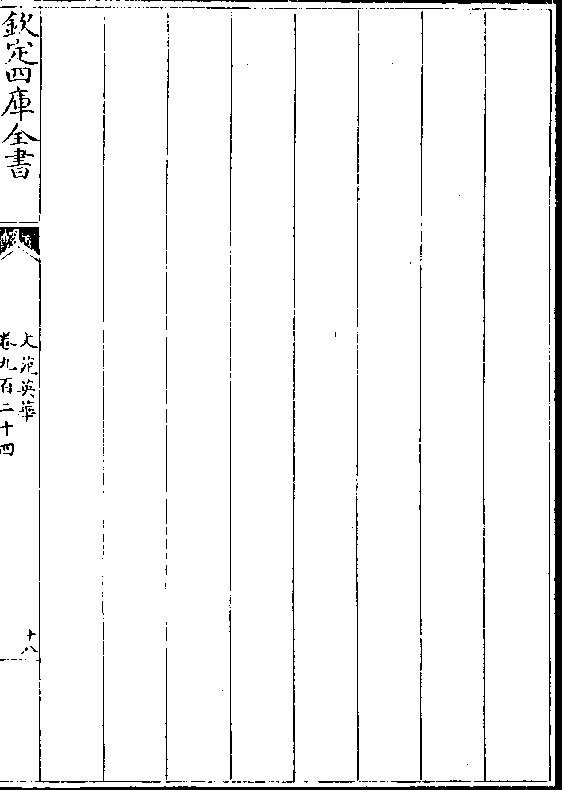 欽定四庫全書
文苑英華
卷九百二十四
十八